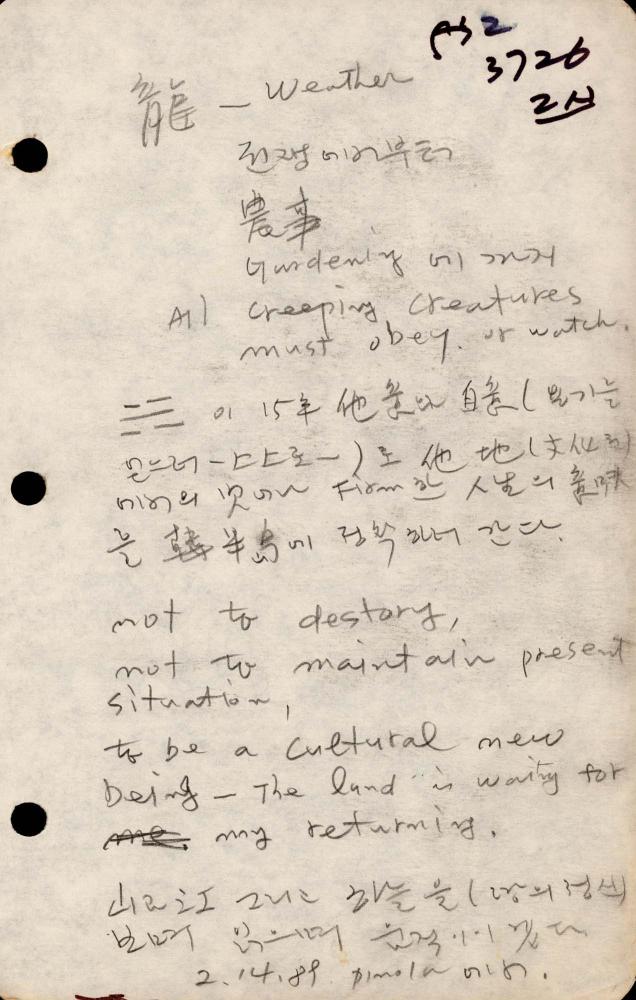 AS2
3726
고시
龍 — Weather
전쟁에서부터
農事
Gardening 에 까지
All creeping creatures
must obey. or watch.
이 15年 他意와 自意(보기는
으로—)로 他地(文化的)
에서의 벗어나 Firm한 人生의 意味
를 韓半島에 정착하러 간다.
not to destory,
not to maintain present
situation,
to be a cultural new
being — The land is waiting for
me. my returning.
그리고 하늘을 (땅의
보며 읽으며 움직이이
2.14.89 pimola 에서.